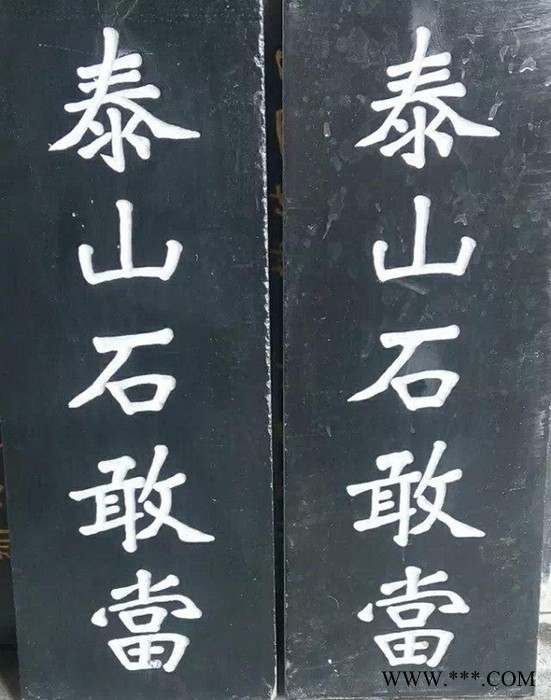 泰山石敢當
泰山石敢當
WWW.***.COM